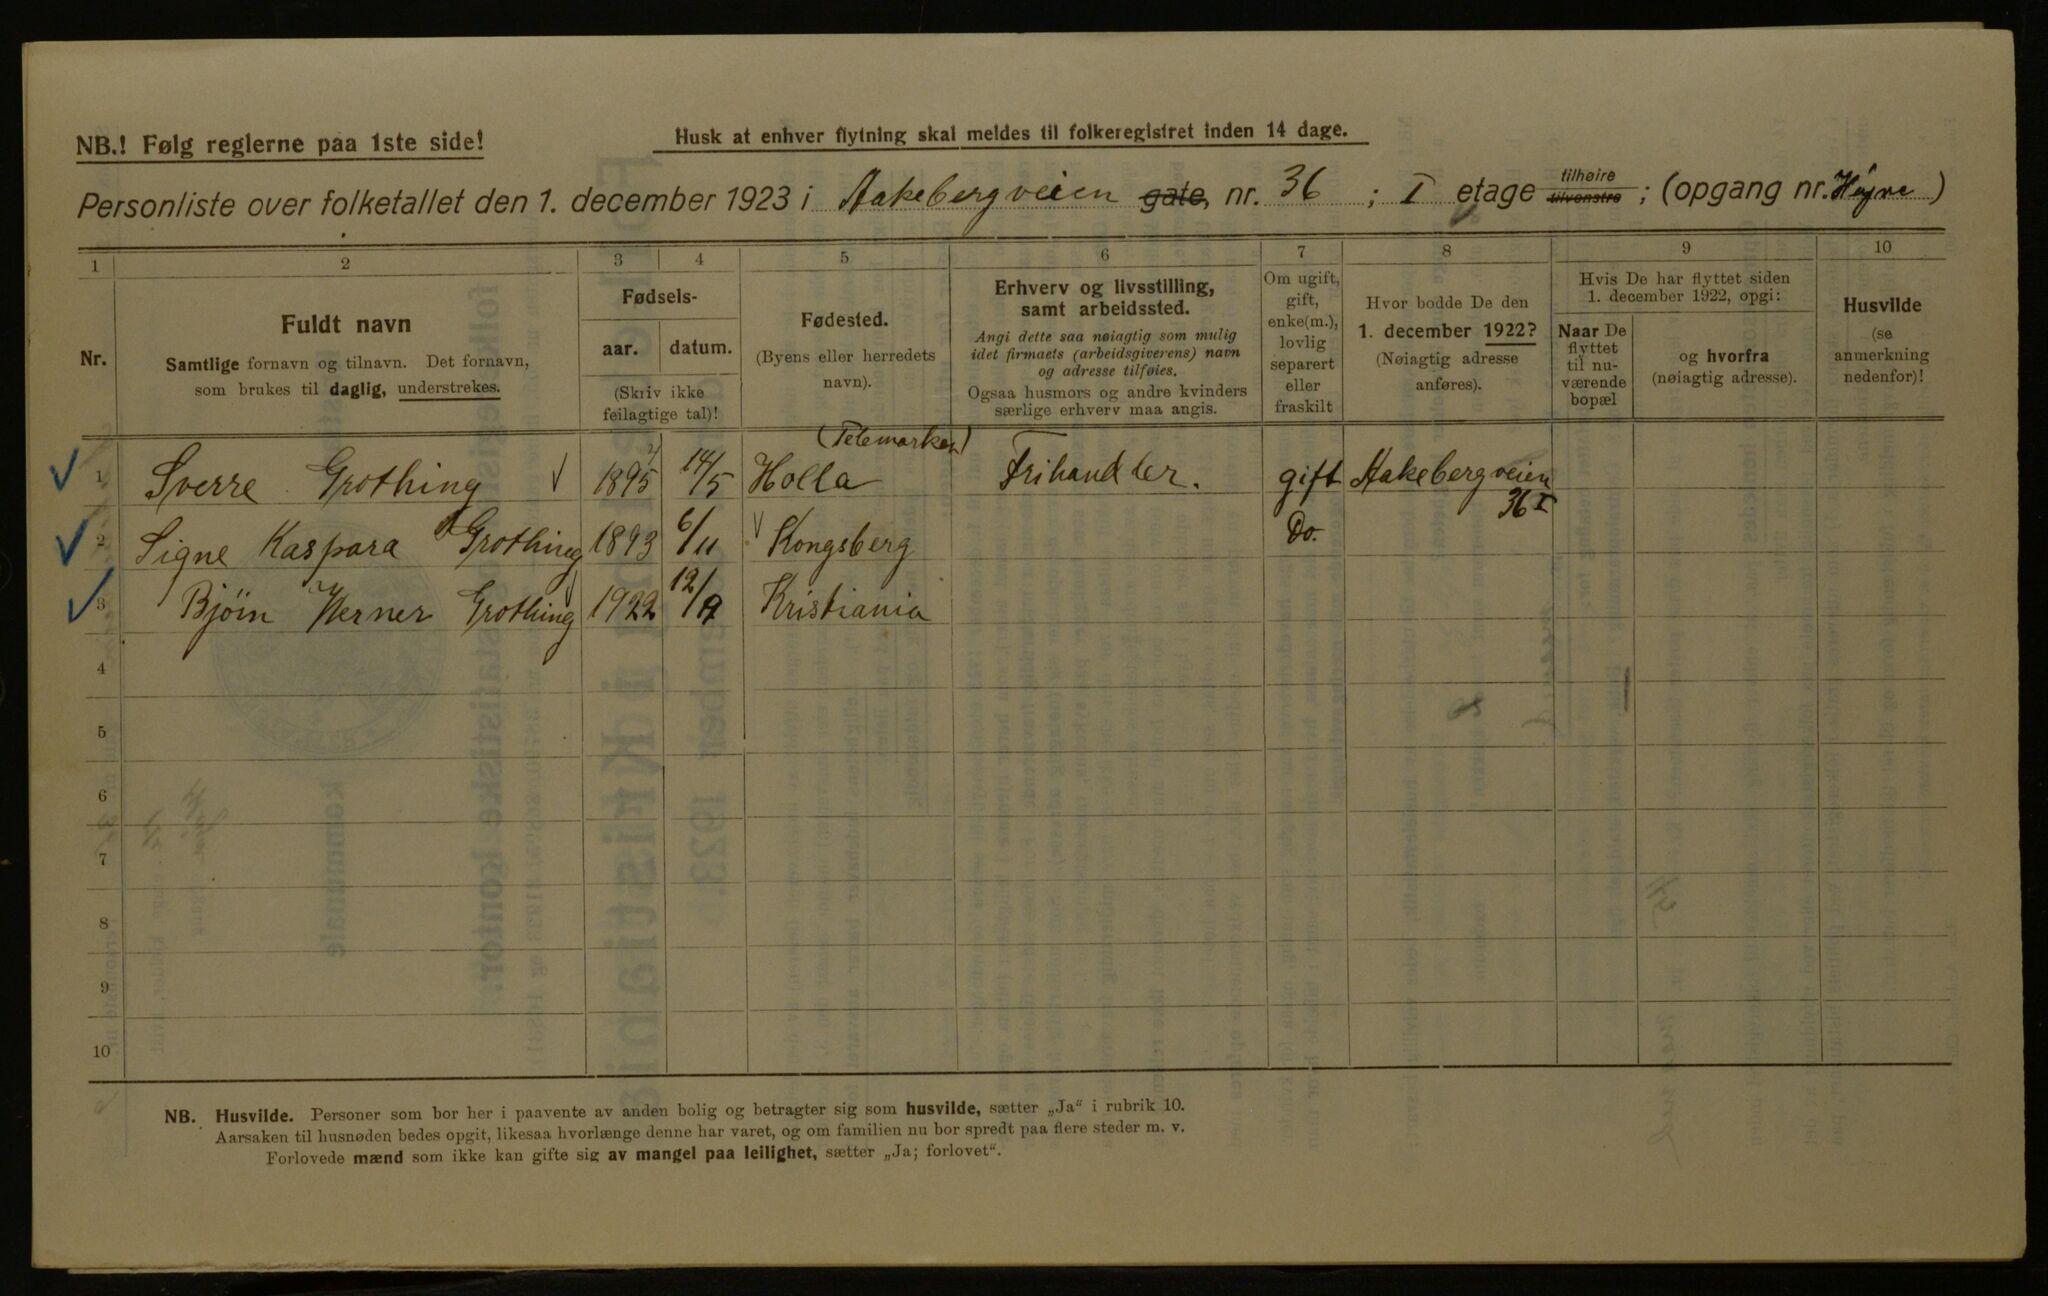 NB.! Følg reglerne paa 1ste side!
Husk at enhver flytning skal meldes til folkeregistret inden 14 dage.
Personliste over folketallet den 1. december 1923 i Aakebergveien gate, nr. 36 ; I etage tilhøire tilvenstre ; (opgang nr. Høyre )
1 2 3 4 5 6 7 8 9 10
Nr.
Fuldt navn
Samtlige fornavn og tilnavn. Det fornavn,
som brukes til daglig, understrekes.
Fødsels-
aar. datum.
(Skriv ikke
feilagtige tal)!
Fødested.
(Byens eller herredets
navn).
Erhverv og livsstilling,
samt arbeidssted.
Angi dette saa nøiagtig som mulig
idet firmaets (arbeidsgiverens) navn
og adresse tilføies.
Ogsaa husmors og andre kvinders
særlige erhverv maa angis.
Om ugift,
gift,
enke(m.),
lovlig
separert
eller
fraskilt
Hvor bodde De den
1. december 1922?
(Nøiagtig adresse
anføres).
Hvis De har flyttet siden
1. december 1922, opgi:
Naar De
flyttet
til nu-
værende
bopæl
og hvorfra
(nøiagtig adresse).
Husvilde
(se
anmerkning
nedenfor)!
(Telemarken)
1 Sverre Grothing 1895 14/5 Holla Frihandler. gift Aakebergveien
36 I
2 Signe Kaspara Grothing 1893 6/11 Kongsberg Do.
3 Bjöin Werner Grothing 1922 12/9 Kristiania
4
5
6
7
8
9
10
NB. Husvilde. Personer som bor her i paavente av anden bolig og betragter sig som husvilde, sætter „Ja“ i rubrik 10.
Aarsaken til husnøden bedes opgit, likesaa hvorlænge denne har varet, og om familien nu bor spredt paa flere steder m. v.
Forlovede mænd som ikke kan gifte sig av mangel paa leilighet, sætter „Ja; forlovet“.